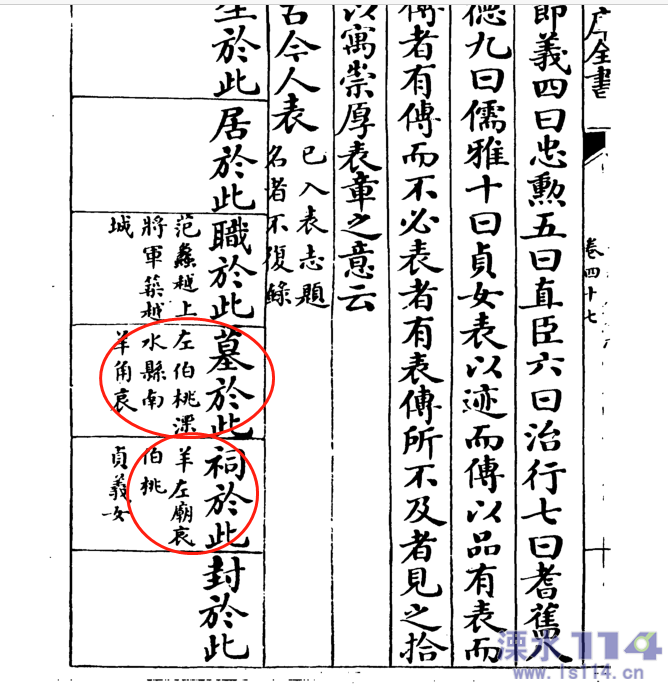 全書
卷四十七
節義四曰忠勲五曰直臣六曰治行七曰耆舊八
德九曰儒雅十曰貞女表以迹而傳以品有表而
傳者有傳而不必表者有表傳所不及者見之拾
以寓崇厚表章之意云
古今人表
已入表志題
名者不復錄
生於此
居於此
職於此
范蠡越上
將軍築越
城
墓於此
左伯桃溧
水縣南
羊角哀
祠於此
羊左廟哀
伯桃
貞義女
封於此
溧水114
www.ls114.cn